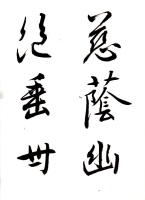 慈蔭幽
垂世